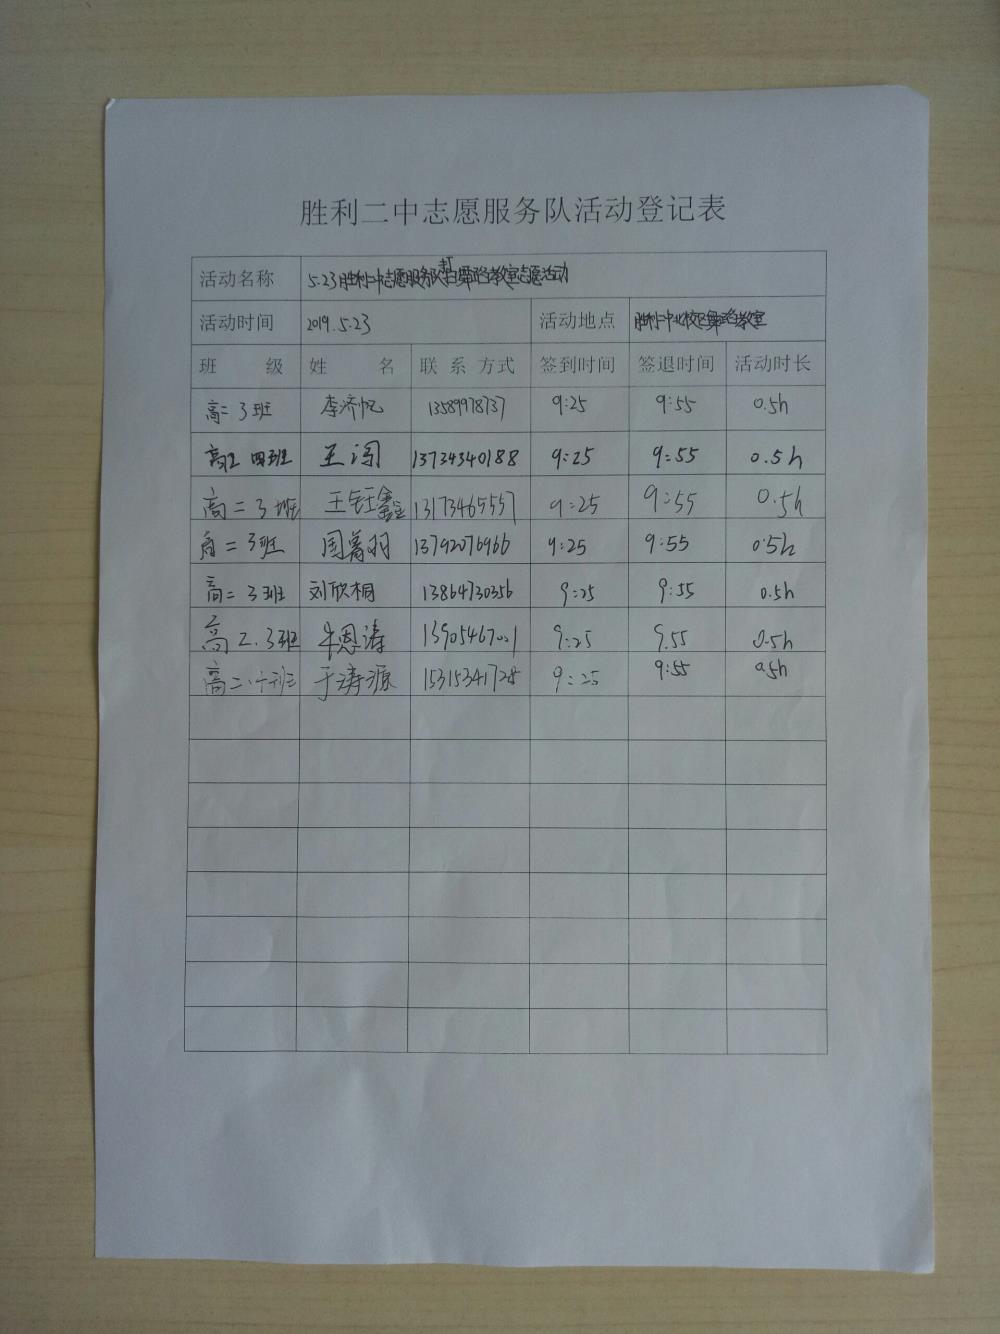 胜利二中志愿服务队活动登记表
活动名称 5.23胜利二中志愿服务队打扫舞蹈教室志愿活动
活动时间 2019.5.23 活动地点 胜利二中北校区舞蹈教室
班 级 姓 名 联系方式 签到时间 签退时间 活动时长
高二3班 李济帆 13589978737 9:25 9:55 0.5h
高二四班 王闯 13734340188 9:25 9:55 0.5h
高二3班 王钰鑫 13173465557 9:25 9:55 0.5h
高二3班 13792076966 9:25 9:55 0.5h
高二3班 刘欣桐 13864730356 9:25 9:55 0.5h
高2.3班 牛恩涛 13905467001 9:25 9.55 0.5h
高二.十班 于涛源 15315341728 9:25 9:55 0.5h